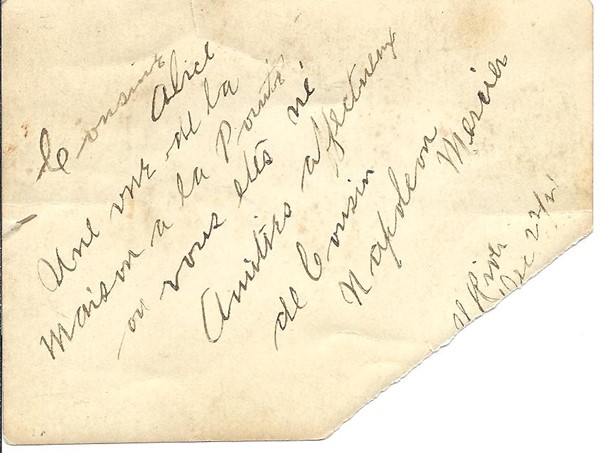 Cousine
Alice
Une vue de la
maison a la Pointe
ou vous etes né
Amitiés affectueux
de Cousin
Napoleon Mercier
River
Dec